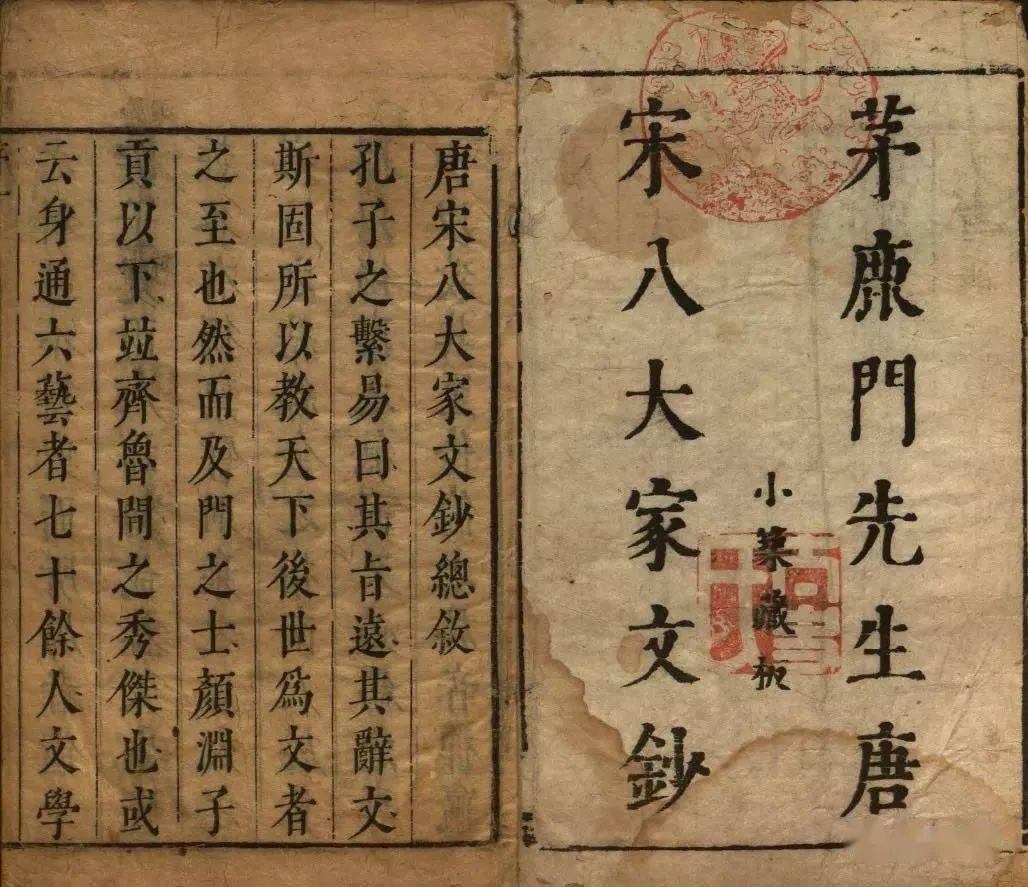 茅鹿門先生唐
小築藏板
宋八大家文鈔
唐宋八大家文鈔總敘
孔子之繫易曰其旨遠其辭文
斯固所以教天下後世爲文者
之至也然而及門之士顏淵子
貢以下竝齊魯間之秀傑也或
云身通六藝者七十餘人文學